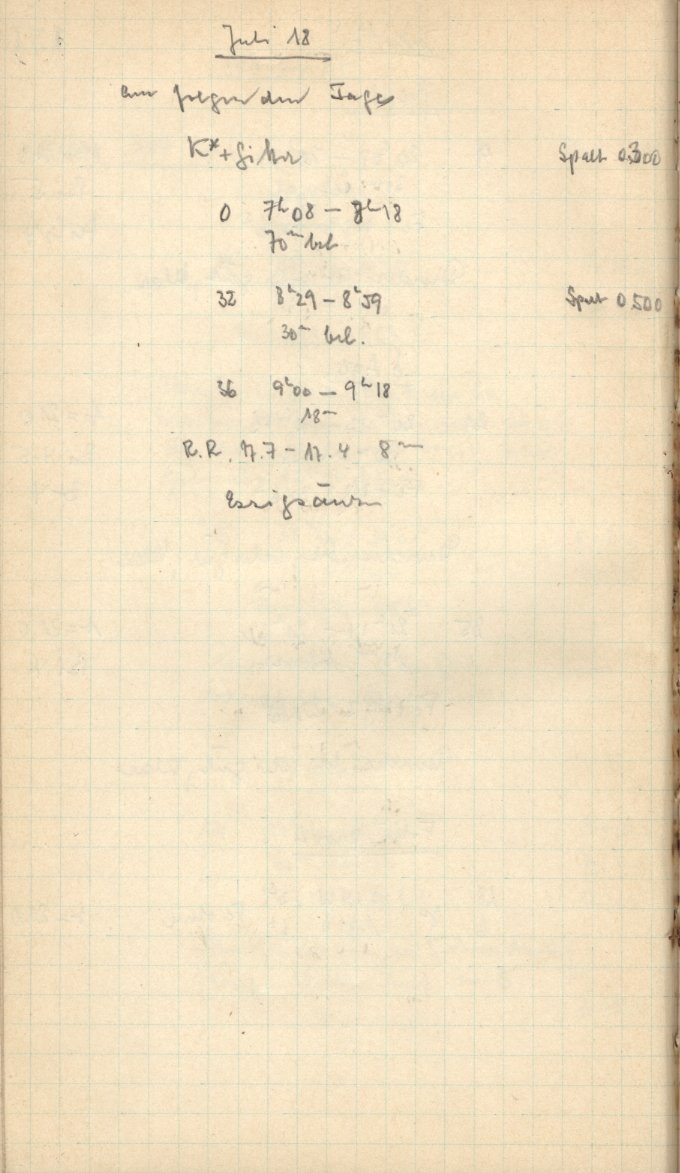 Juli 18
am folgenden Tage
K*+Gitter Spalt 0.300
0 7h08 – 8h18
70m bel.
32 8h29 – 8h59 Spalt 0.500
30m bel.
36 9h00 – 9h18
18m
R.R. 17.7 – 17.4 – 8m
Essigsäure